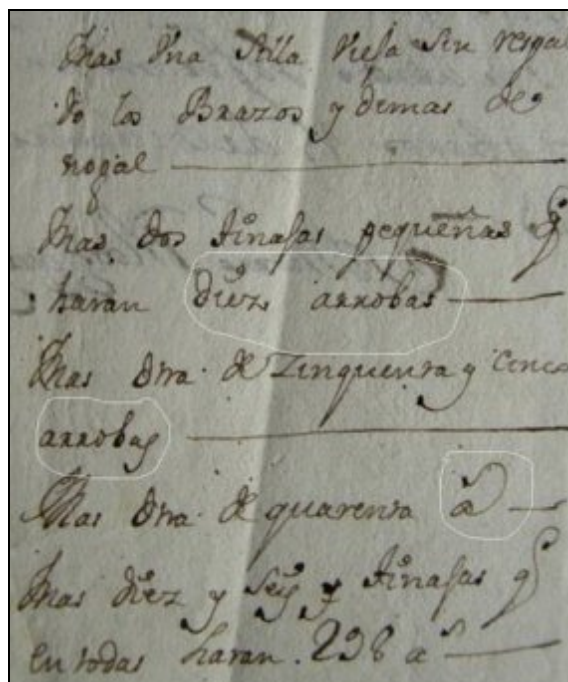 Mas Vna Silla Vieja sin respal
do los Brazos y demas de
nogal
Mas dos tinajas pequeñas q
haran diez arrobas
Mas otra de Zinquenta y cinco
arrobas
Mas otra de quarenta as
Mas diez y seis tinajas q
en todas haran. 298 as